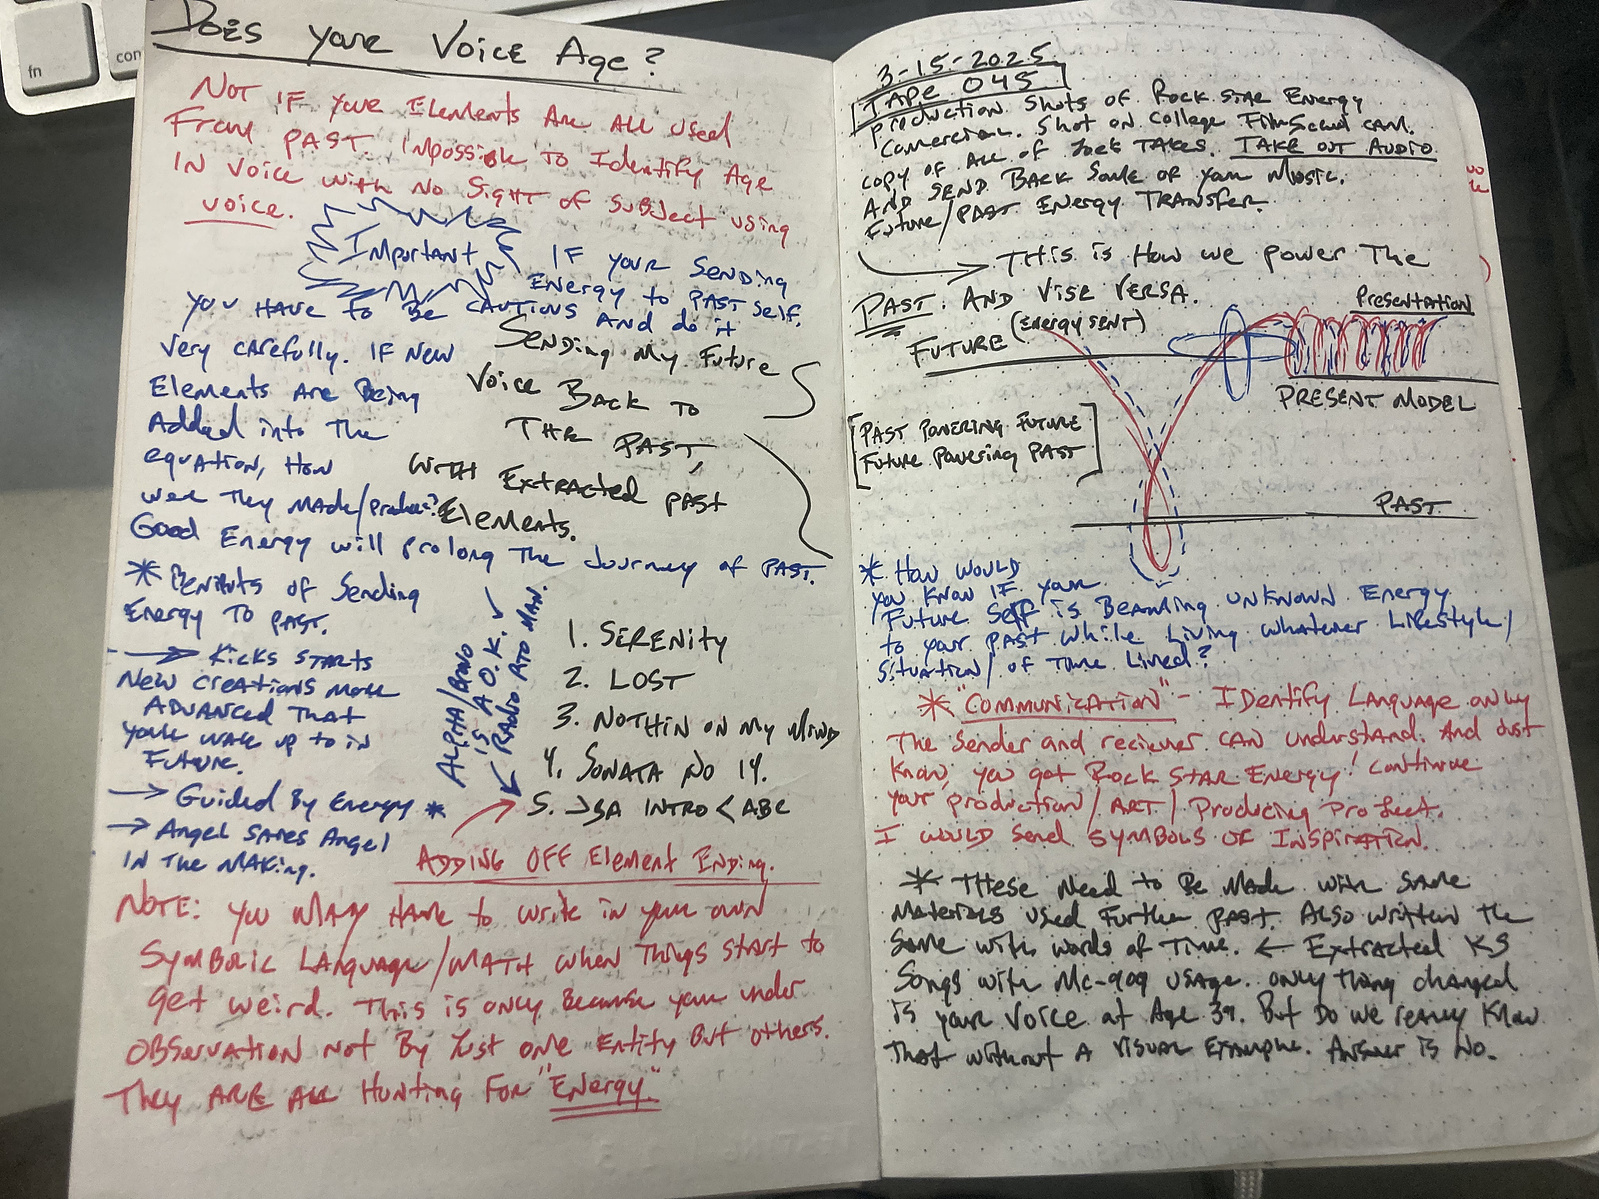 fn
con
Does your Voice Age?
Not IF your Elements Are All used
From PAST. Impossible To Identify Age
IN Voice with No Sight of Subject using
voice.
Important
IF your Sending
Energy to PAST self.
you Have to Be CAUTIOUS AND do it
very carefully. IF New
Elements Are Being
Added into The
equation, How
were They Made/Produce?
Good Energy will prolong The Journey of PAST.
Sending My Future
Voice Back To
THE PAST,
WITH Extracted past
Elements.
* Benifits of Sending
Energy To PAST.
→ Kicks STARTS
New Creations More
ADVANCED THAT
you'll wake up to in
Future.
→ Guided By Energy *
→ Angel Saves Angel
IN THE MAKING.
ALPHA/BRAVO
is A.O.K.
Radio ATO MAN.
1. SERENITY
2. LOST
3. NOTHIN ON MY MIND
4. SONATA NO 14.
5. →SA INTRO < ABC
ADDING OFF Element Ending.
NOTE: you MAY Have to write in your own
Symbolic Language/MATH when Things start to
get weird. This is only Because your under
OBSERVATION not By Just one Entity But others.
They ARE ALL Hunting For "Energy"
3-15-2025
TAPE 045
Production Shots of Rock Star Energy
Comercial. Shot on College Film School CAM.
copy of All of Takes. TAKE OUT AUDIO
AND SEND BACK Some of your Music.
Future/PAST Energy TRANSFER.
→ THis is How we power The
PAST. AND VISE VERSA.
FUTURE (Energy SENT)
Presentation
PRESENT MODEL
[PAST POWERING FUTURE
Future Powering PAST]
PAST
* How WOULD
you Know IF your
Future Self is Beaming unknown Energy
to your PAST while Living whatever Lifestyle/
situation/ of Time Lived?
* "COMMUNIZATION" - IDentify Language only
The sender and reciever CAN understand. And Just
Know, you got Rock Star Energy! Continue
your production/ART/Producing Project.
I WOULD Send SYMBOLS OF INSPIRATION.
* THese Need to Be Made with same
Materials used Further past. Also written The
same with words of Time. ← Extracted KS
Songs with Mc-909 usage. only thing changed
is your Voice at Age 39. But Do we really Know
That without A visual Example. Answer is No.